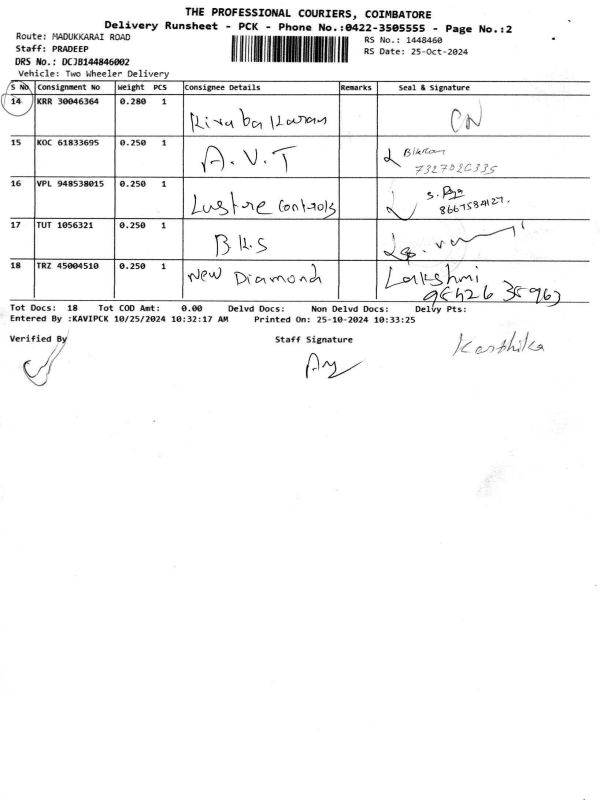 THE PROFESSIONAL COURIERS, COIMBATORE
Delivery Runsheet - PCK - Phone No.:0422-3505555 - Page No.:2
Route: MADUKKARAI ROAD
RS No.: 1448460
Staff: PRADEEP
RS Date: 25-Oct-2024
DRS No.: DCJB144846002
Vehicle: Two Wheeler Delivery
S No. Consignment No Weight PCS Consignee Details Remarks Seal & Signature
14 KRR 30046364 0.280 1 Kirubakaran CN
15 KOC 61833695 0.250 1 A.V.T
16 VPL 948538015 0.250 1 Lustre Controls 8667584127.
17 TUT 1056321 0.250 1 B.K.S
18 TRZ 45004510 0.250 1 New Diamond Lakshmi
Tot Docs: 18 Tot COD Amt: 0.00 Delvd Docs: Non Delvd Docs: Delvy Pts:
Entered By :KAVIPCK 10/25/2024 10:32:17 AM Printed On: 25-10-2024 10:33:25
Verified By Staff Signature
Karthika